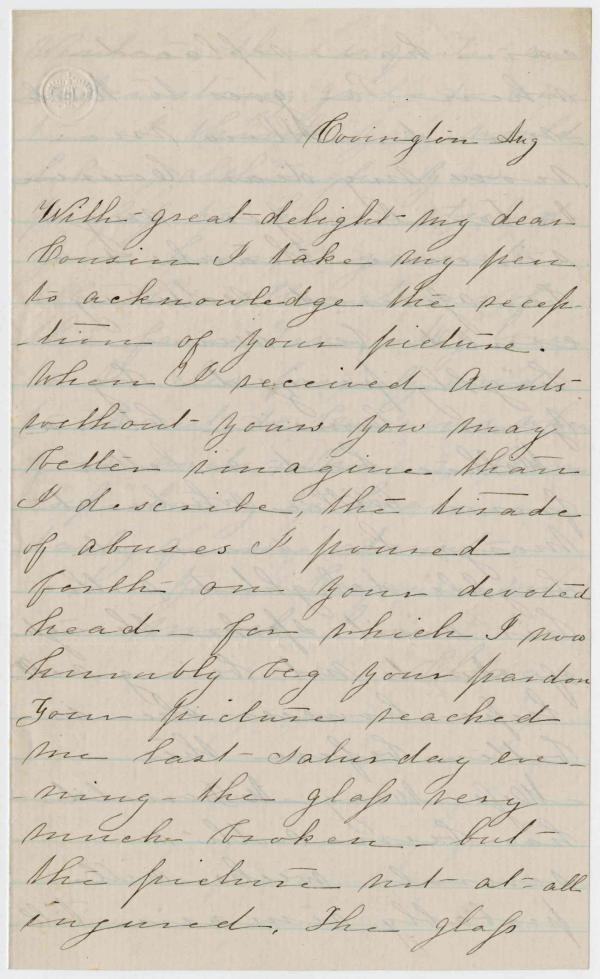 Covington Aug
With great delight my dear
Cousin I take my pen
to acknowledge the recep-
-tion of your picture.
When I received Aunts
without yours you may
better imagine than
I describe, the tirade
of abuses I poured
forth on your devoted
head - for which I now
humbly beg your pardon
Your picture reached
me last Saturday eve-
-ning - the glass very
much broken - but
the picture not at all
injured. The glass